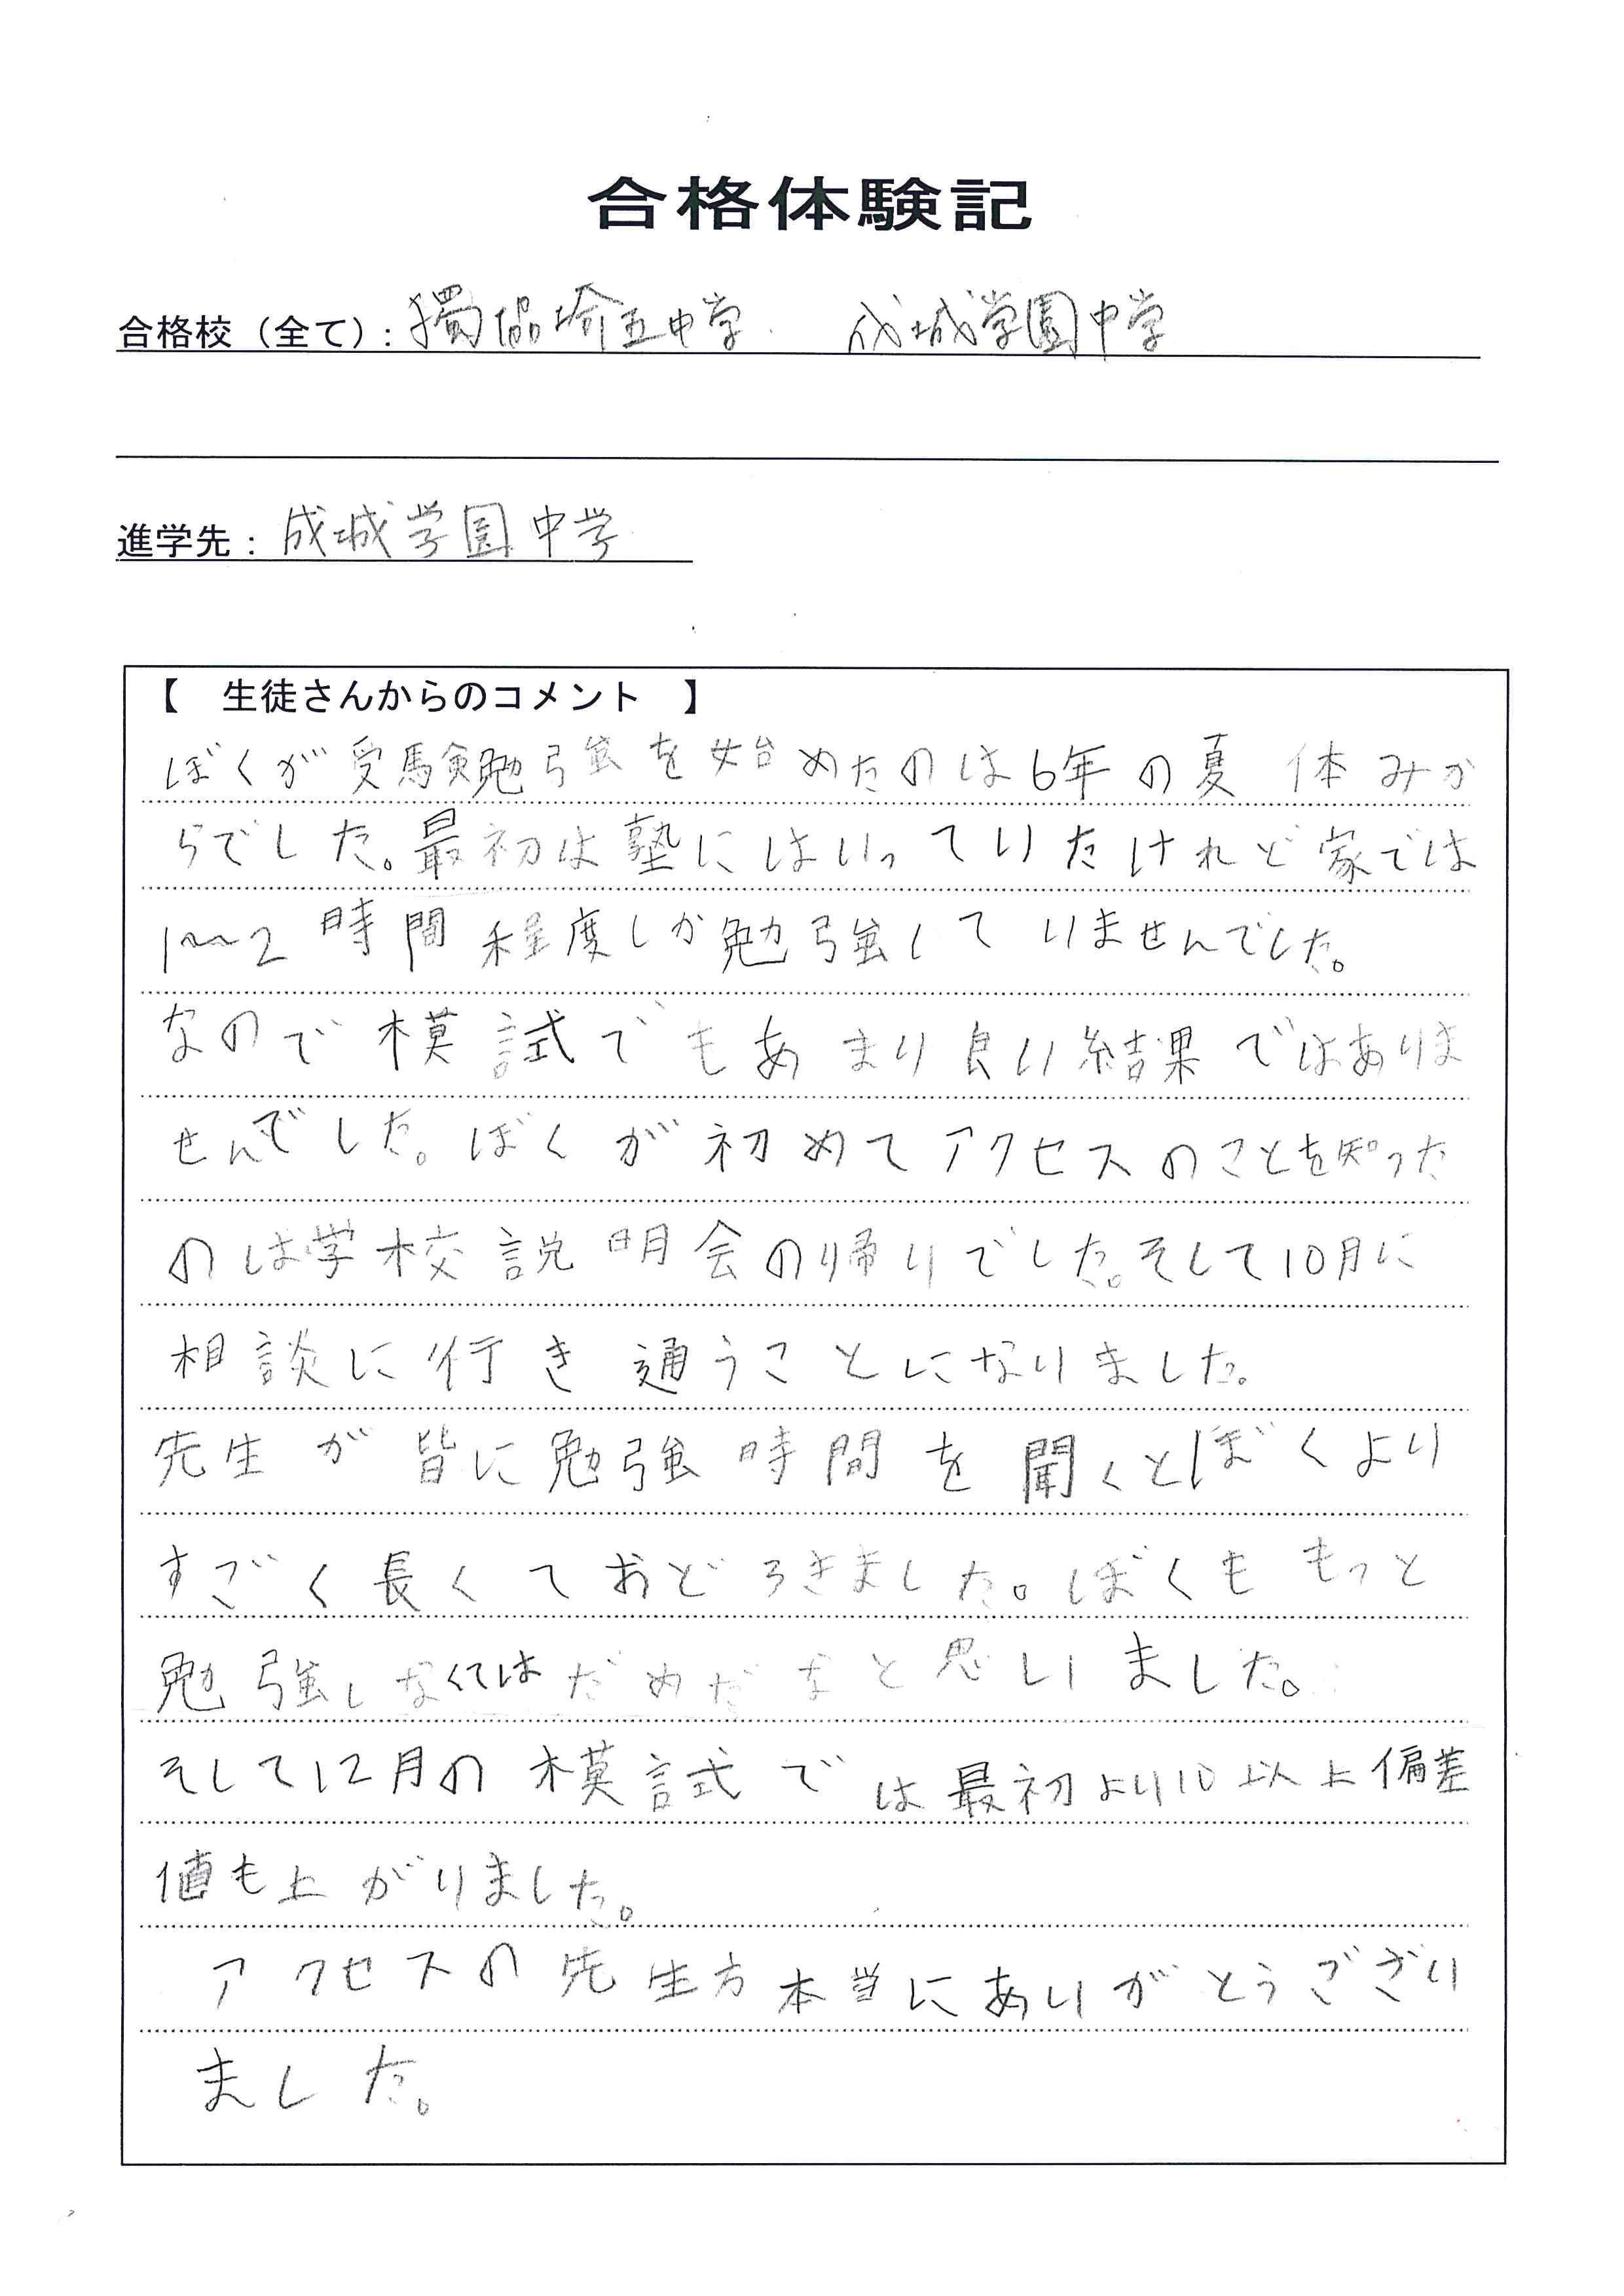 合格体験記
合格校（全て）：獨協埼玉中学　成城学園中学
進学先：成城学園中学
【　生徒さんからのコメント　】
ぼくが受験勉強を始めたのは6年の夏休みか
らでした。最初は塾にはいっていたけれど家では
1〜2時間程度しか勉強していませんでした。
なので模試でもあまり良い結果ではありま
せんでした。ぼくが初めてアクセスのことを知った
のは学校説明会の帰りでした。そして10月に
相談に行き通うことになりました。
先生が皆に勉強時間を聞くとぼくより
すごく長くておどろきました。ぼくももっと
勉強しなくてはだめだなと思いました。
そして12月の模試では最初より10以上偏差
値も上がりました。
アクセスの先生方本当にありがとうござい
ました。